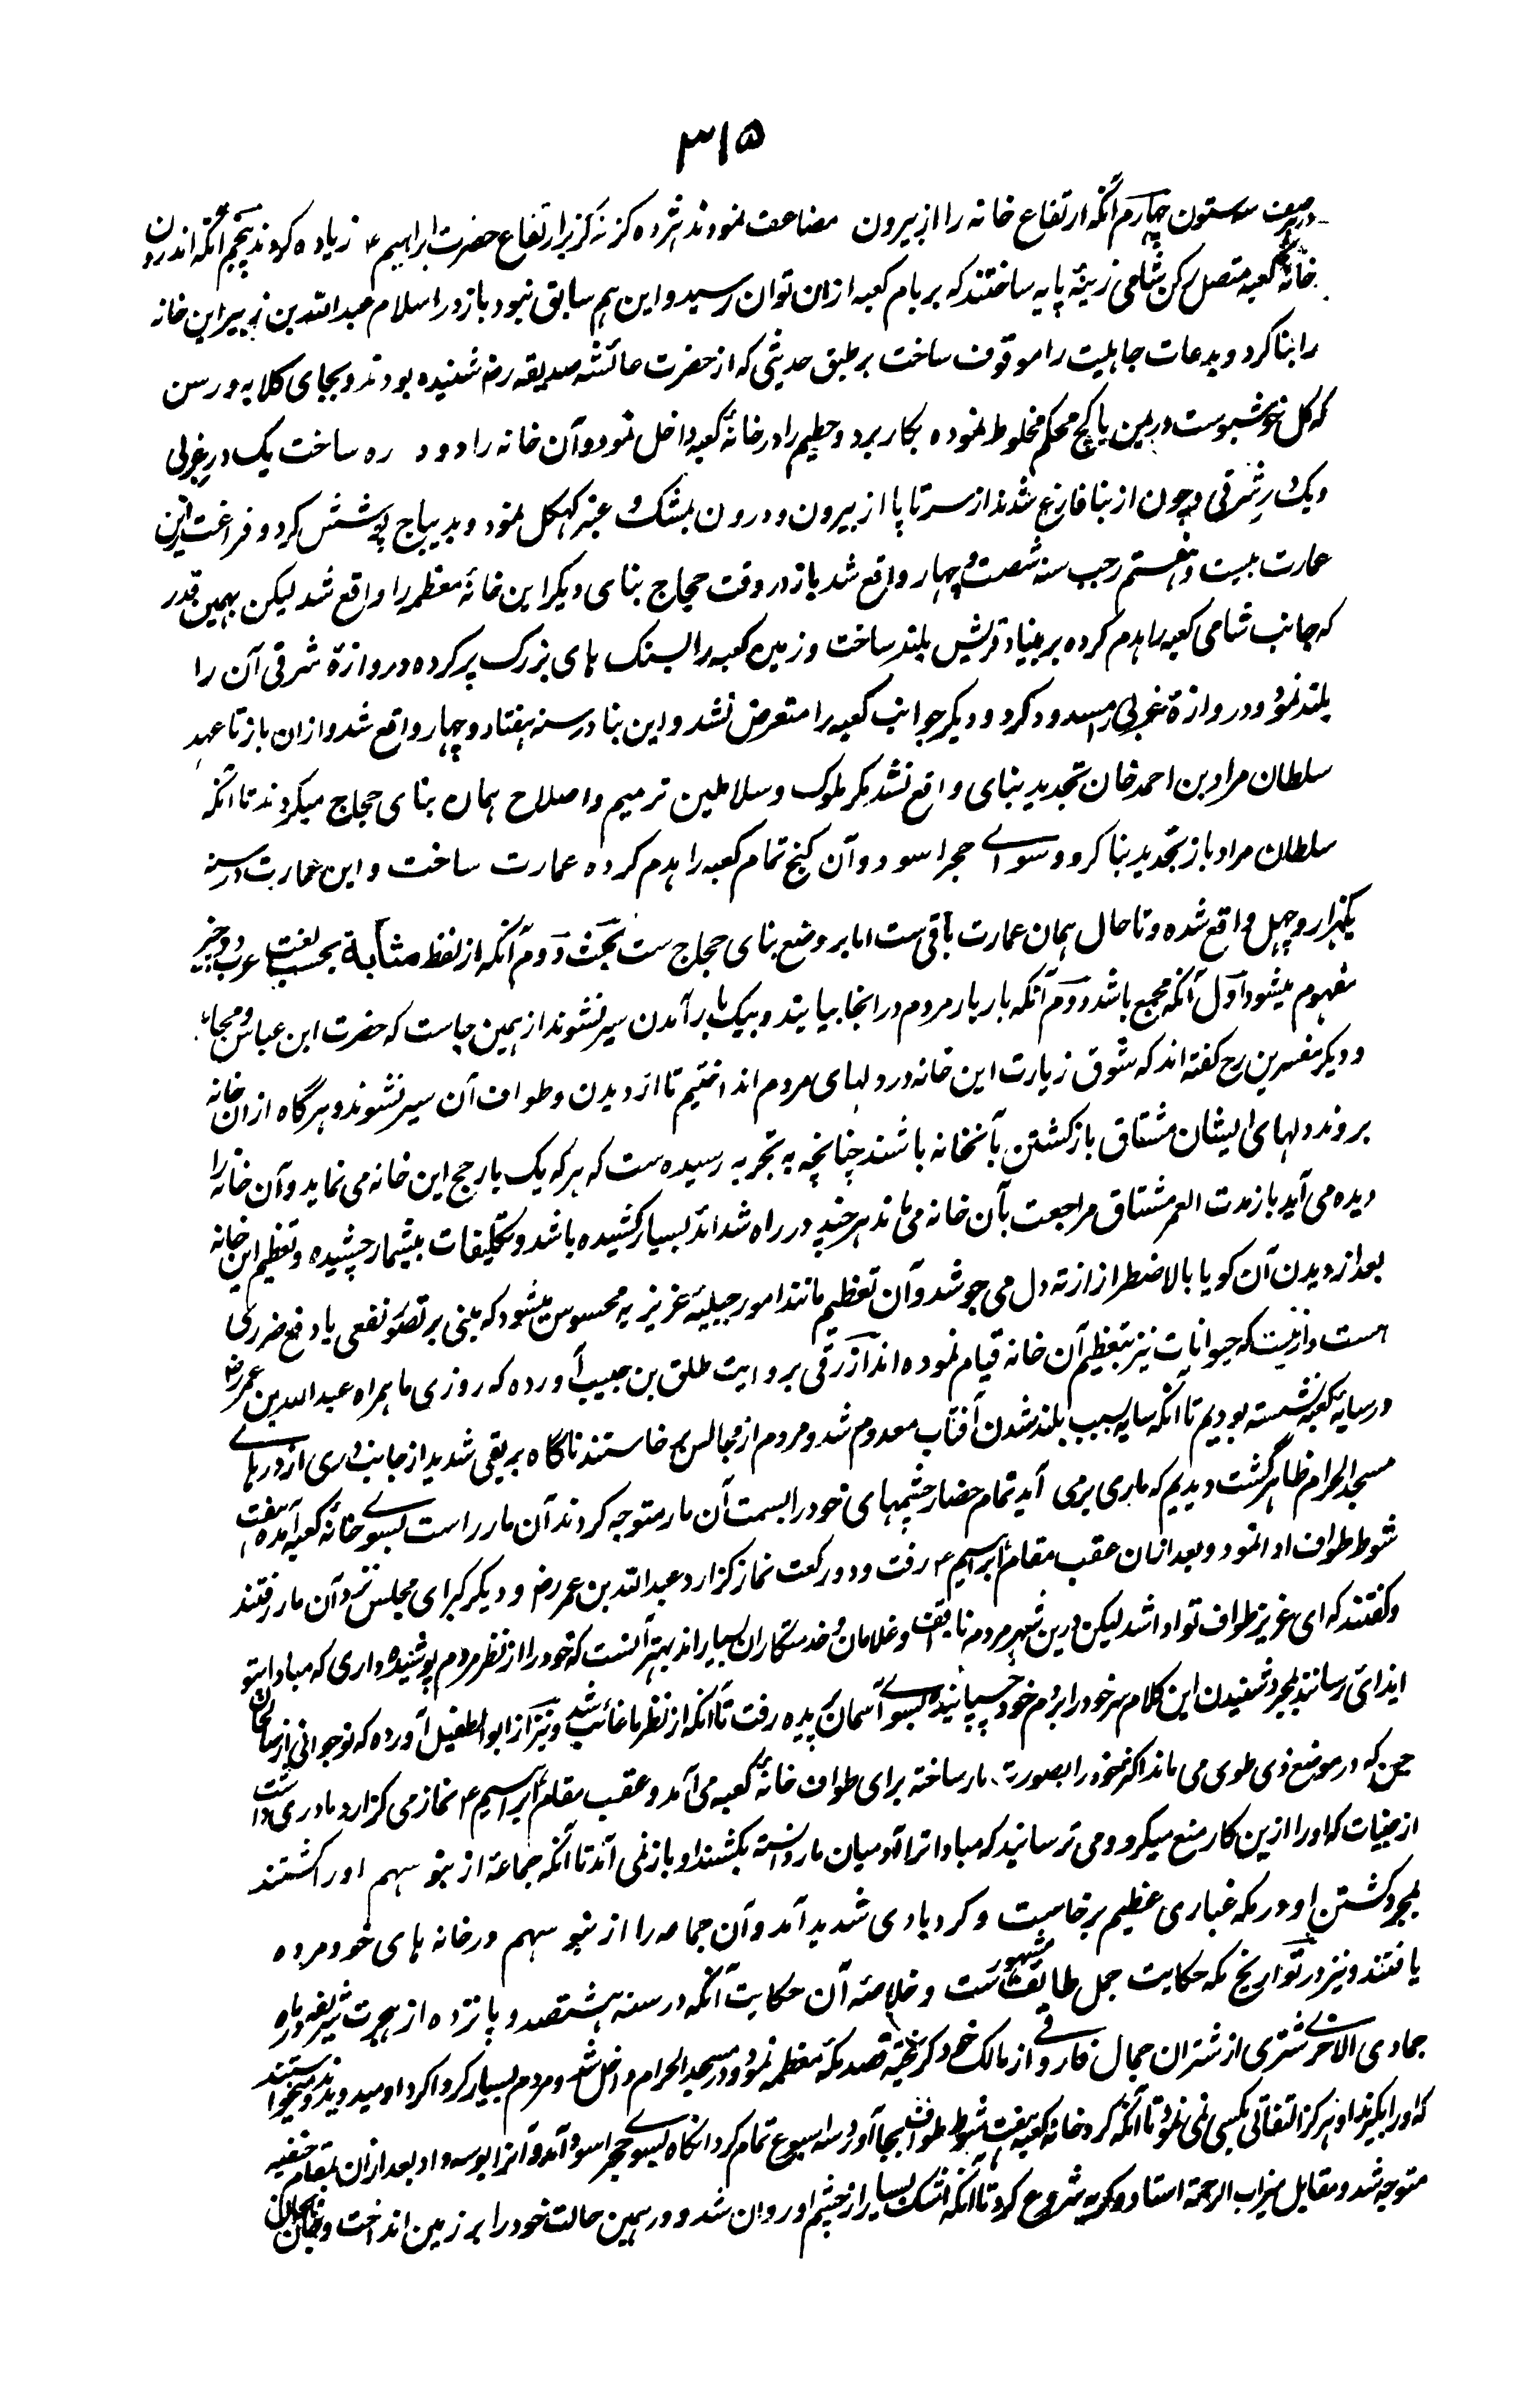 ۳۱۵
در صفت سه ستون چهارم آنکه ارتفاع خانه را از بیرون مضاعف نمودند هژده گز نه گز بر ارتفاع حضرت ابراهیم ۴ زیاده کردند پنجم آنکه اندرون
خانهٔ کعبه متصل رکن شامی زینهٔ پایه ساختند که بر بام کعبه ازان توان رسید و این هم سابق نبود باز در اسلام عبدالله بن زبیر این خانه
را بنا کرد و بدعات جاهلیت را موقوف ساخت بر طبق حدیثی که از حضرت عائشه صدیقه رض شنیده بودند و بجای کلابه ورس
که گل خوشبوست در یمن با گچ محکم مخلوط نموده بکار برد و حطیم را در خانهٔ کعبه داخل نمود و آن خانه را دو دره ساخت یک در غربی
و یک در شرقی و چون از بنا فارغ شدند از سر تا پا از بیرون و درون بمشک و عنبر کهگل نمود و بدیباج پوشش کرد و فراغت ازین
عمارت بیست و هفتم رجب سنه شصت و چهار واقع شد باز در وقت حجاج بنای دیگر این خانهٔ معظمه را واقع شد لیکن بهمین قدر
که جانب شامی کعبه را هدم کرده بر بنیاد قریش بلند ساخت و زمین کعبه را بسنگ های بزرگ پر کرده دروازهٔ شرقی آن را
بلند نمود و دروازهٔ غربی را مسدود کرد و دیگر جوانب کعبه را متعرض نشد و این بنا در سنه هفتاد و چهار واقع شد و ازان باز تا عهد
سلطان مراد بن احمد خان تجدید بنای واقع نشد مگر ملوک و سلاطین ترمیم و اصلاح همان بنای حجاج میکردند تا آنکه
سلطان مراد باز تجدید بنا کرد و سوای حجر اسود و آن کنج تمام کعبه را هدم کرده عمارت ساخت و این عمارت در سنه
یکهزار و چهل واقع شده و تا حال همان عمارت باقی ست اما بر وضع بنای حجاج ست بحث دوم آنکه از لفظ مثابة بحسب لغت عرب دو چیز
مفهوم میشود اول آنکه مجمع باشد دوم آنکه بار بار مردم در انجا بیایند و بیک بار آمدن سیر نشوند از همین جاست که حضرت ابن عباس و مجاهد
و دیگر مفسرین رح گفته اند که شوق زیارت این خانه در دلهای مردم انداختیم تا از دیدن و طواف آن سیر نشوند و هرگاه ازان خانه
بروند دلهای ایشان مشتاق بازگشتن بآنخانه باشند چنانچه به تجربه رسیده ست که هر که یک بار حج این خانه می نماید و آن خانه را
دیده می آید باز مدت العمر مشتاق مراجعت بآن خانه می ماند هر چند در راه شدائد بسیار کشیده باشد و تکلیفات بیشمار چشیده و تعظیم این خانه
بعد از دیدن آن گویا بالاضطرار از ته دل می جوشد و آن تعظیم مانند امور جبلیهٔ غریزیه محسوس میشود که مبنی بر تصور نفعی یا دفع ضرری
هست و ازینست که حیوانات نیز بتعظیم آن خانه قیام نموده اند ازرقی بروایت طلق بن حبیب آورده که روزی ما همراه عبدالله بن عمر رض
در سایهٔ کعبه نشسته بودیم تا آنکه سایه بسبب بلند شدن آفتاب معدوم شد و مردم از مجالس برخاستند ناگاه بریقی شدید از جانب دری از درهای
مسجد الحرام ظاهر گشت دیدیم که ماری برمی آید تمام حضار چشمهای خود را بسمت آن مار متوجه کردند آن مار راست بسوی خانهٔ کعبه آمده هفت
شوط طواف ادا نمود و بعد ازان عقب مقام ابراهیم ۴ رفت و دو رکعت نماز گزارد عبدالله بن عمر رض و دیگر کبرای مجلس نزد آن مار رفتند
و گفتند که ای عزیز طواف تو ادا شد لیکن درین شهر مردم ناواقف و غلامان و خدمتگاران بسیار اند بهتر آنست که خود را از نظر مردم پوشیده داری که مبادا بتو
ایذائی رسانند بمجرد شنیدن این کلام سر خود را بر دم خود چسپانیده بسوی آسمان پریده رفت تا آنکه از نظر ما غائب شد و نیز از ابوالطفیل آورده که نوجوانی از ساکنان
جن که در موضع ذی طوی می ماند اکثر خود را بصورت مار ساخته برای طواف خانهٔ کعبه می آمد و عقب مقام ابراهیم ۴ نماز می گزارد مادری داشت
از جنیات که او را ازین کار منع میکرد و می ترسانید که مبادا ترا آدمیان مار دانسته بکشند او باز نمی آمد تا آنکه جماعه از بنو سهم او را کشتند
بمجرد کشتن او در مکه غباری عظیم برخاست و گردبادی شدید آمد و آن جماعه را از بنو سهم در خانه های خود مرده
یافتند و نیز در تواریخ مکه حکایت جمل طائف مشهور ست و خلاصهٔ آن حکایت آنکه در سنه هشتصد و پانزده از هجرت شریفه در ماه
جمادی الاخری شتری از شتران جمال فاروقی از مالک خود گریخته قصد مکهٔ معظمه نمود و در مسجد الحرام داخل شد و مردم بسیار گرداگرد او میدویدند و میخواستند
که او را بگیرند او هرگز التفاتی بکسی نمی نمود تا آنکه گرد خانه کعبه هفت شوط طواف بجا آورد و سه اسبوع تمام کرد آنگاه بسوی حجر اسود آمد و آنرا بوسه داد بعد ازان بمقام حنفیه
متوجه شد و مقابل میزاب الرحمة استاد و گریه شروع کرد تا آنکه اشک بسیار از چشم او روان شد و در همین حالت خود را بر زمین انداخت و جان